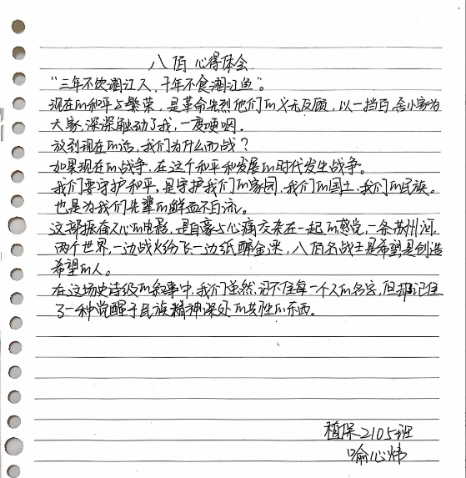 八佰 心得体会
"三年不饮湘江入,十年不食湘江鱼"。
现在的和平与繁荣,是革命先烈他们的义无反顾,以一挡百,舍小家为
大家,深深触动了我,一度哽咽。
放到现在的话,我们为什么而战?
如果现在的战争,在这个和平和发展的时代发生战争。
我们要守护和平,是守护我们的家园,我们的国土,我们的民族。
也是为我们先辈的鲜血不白流。
这部振奋人心的电影,是自豪与心痛交来在一起的感觉,一条苏州河,
两个世界,一边战火纷飞,一边纸醉金迷,八佰名战士是希望是创造
希望的人。
在这场史诗级的叙事中,我们虽然记不住每一个人的名字,但都记住
了一种觉醒于民族精神深处的共性的东西。
植保2105班
喻心炜